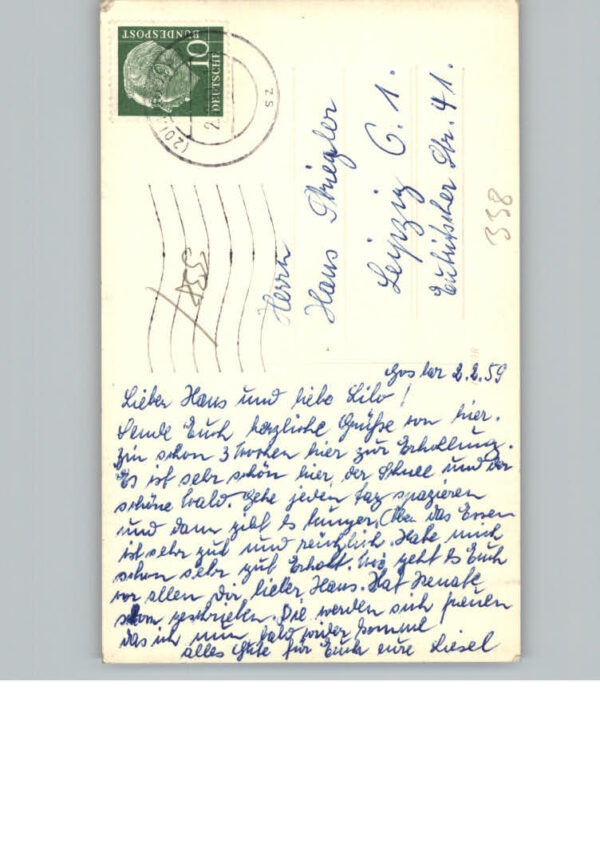 DEUTSCHE
BUNDESPOST
10
Herrn
Hans Stiegler
Leipzig C. 1.
Str. 41.
338
338
Goslar 2.2.59
Lieber Hans und liebe Lilo!
Sende Euch herzliche Grüße von hier.
Bin schon 3 Wochen hier zur Erhollung.
Es ist sehr schön hier, der Schnee und der
schöne Wald. Gehe jeden Tag spazieren
und dann gibt es hunger. Aber das Essen
ist sehr gut und reichlich. Habe mich
schon sehr gut Erholt. Wie geht Es Euch
vor allen Dir lieber Hans. Hat Renate
schon geschrieben. Die werden sich freuen
das ich nun bald wieder komme
alles Gute für Euch eure Liesel